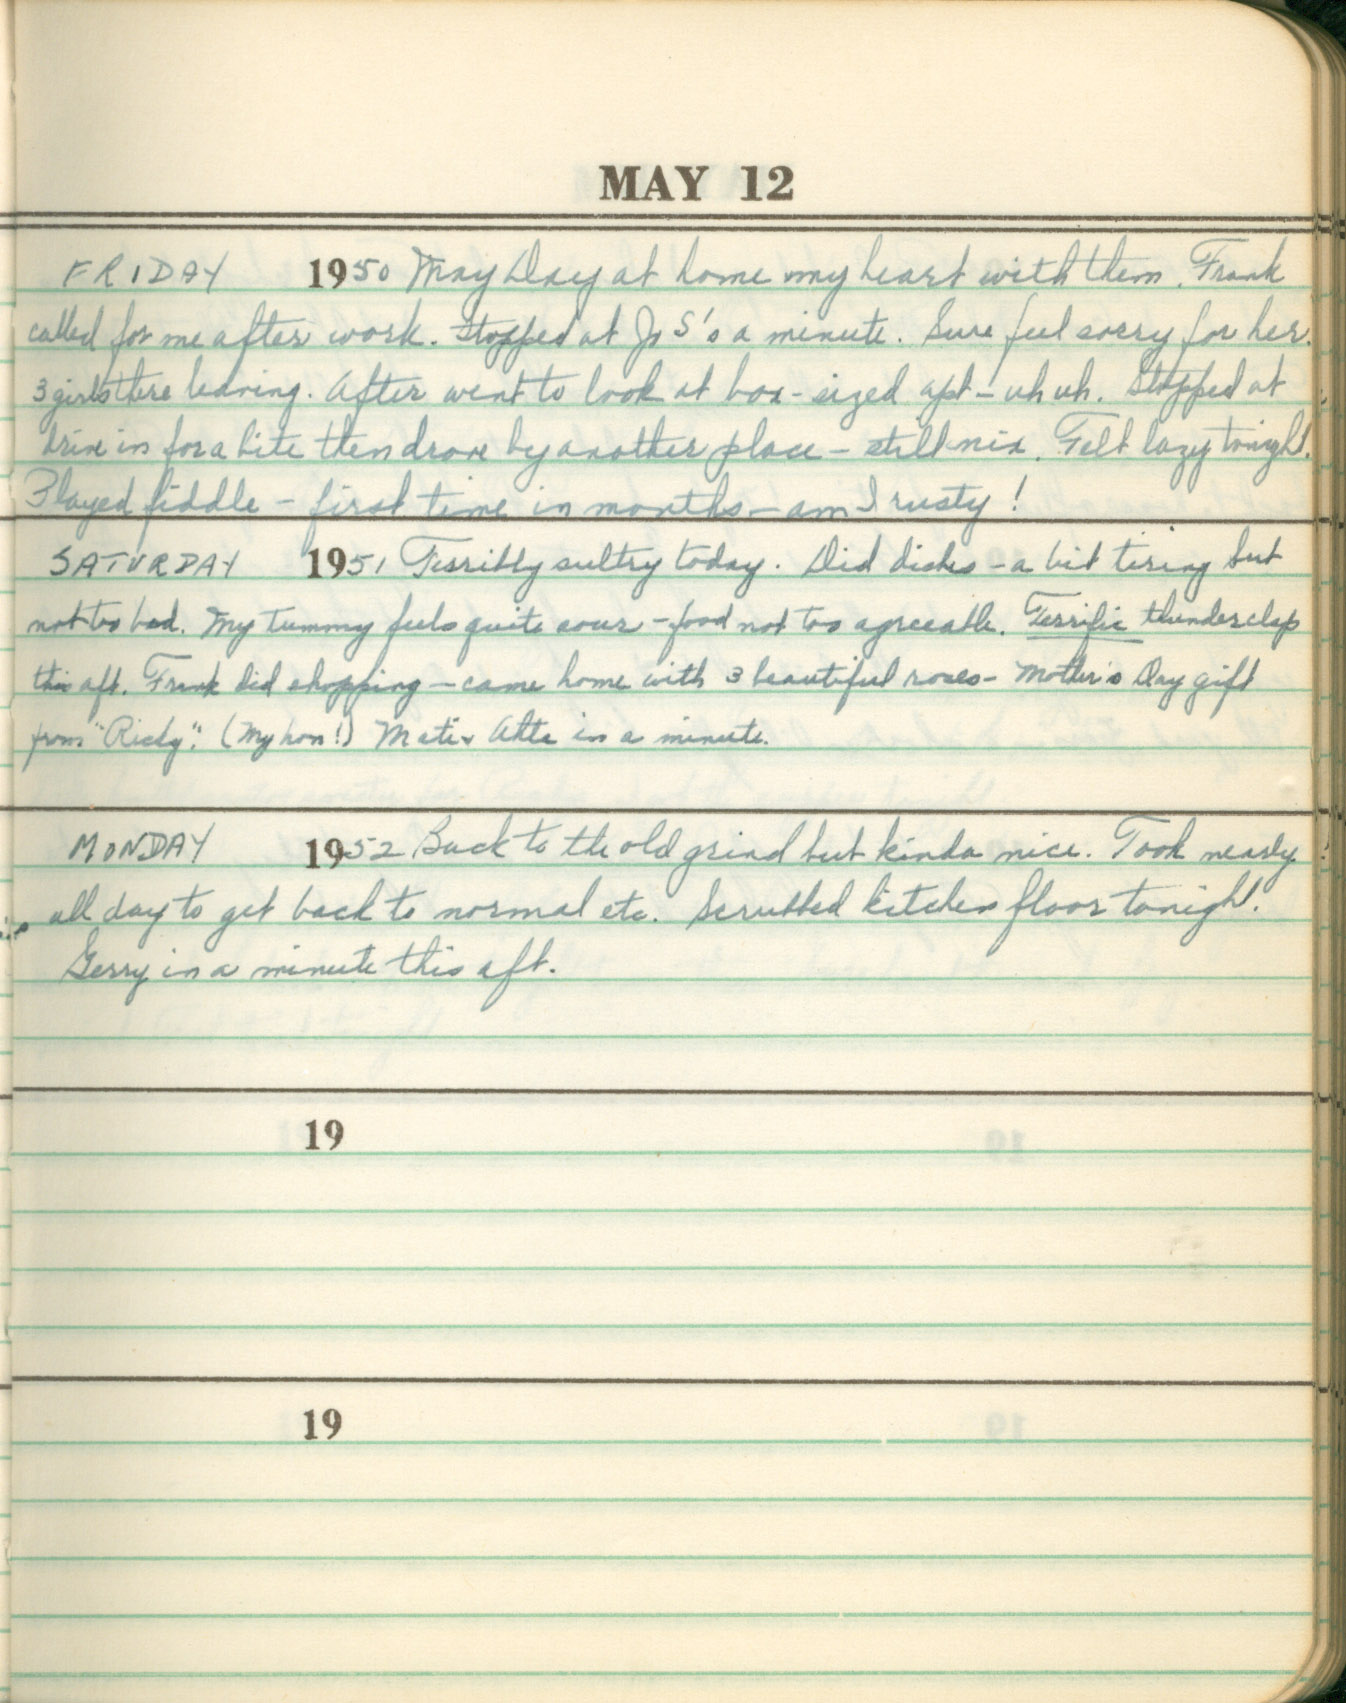 MAY 12
FRIDAY 1950 May Day at home my heart with them. Frank
called for me after work. Stopped at Jo S's a minute. Sure feel sorry for her.
3 girls there leaving. After went to look at box-sized apt - uh uh. Stopped at
drive in for a bite then drove by another place - still nix. Felt lazy tonight.
Played fiddle - first time in months - am I rusty!
SATURDAY 1951 Terribly sultry today. Did dishes - a bit tiring but
not too bad. My tummy feels quite sour - food not too agreeable. Terrific thunderclap
this aft. Frank did shopping - came home with 3 beautiful roses - Mother's Day gift
from "Ricky". (My hon!) in a minute.
MONDAY 1952 Back to the old grind but kinda nice. Took nearly
all day to get back to normal etc. Scrubbed kitchen floor tonight.
Gerry in a minute this aft.
19
19